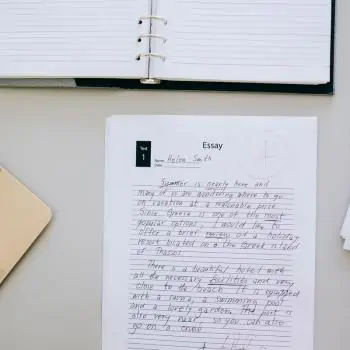 Essay
Test
1
Name: Helen Smith
Date:
Summer is nearly here and
many of us are wondering where to go
on vacation at a reasonable price.
Since Greece is one of the most
popular options, I would like to
offer a brief review of a holiday
resort located on a the Greek island
of Thassos.
There is a beautiful hotel with
all the necessary facilities and very
close to the beach. It is equipped
with a sauna, a swimming pool
and a lovely garden. The port is
also very near, so you can also
go on a cruise